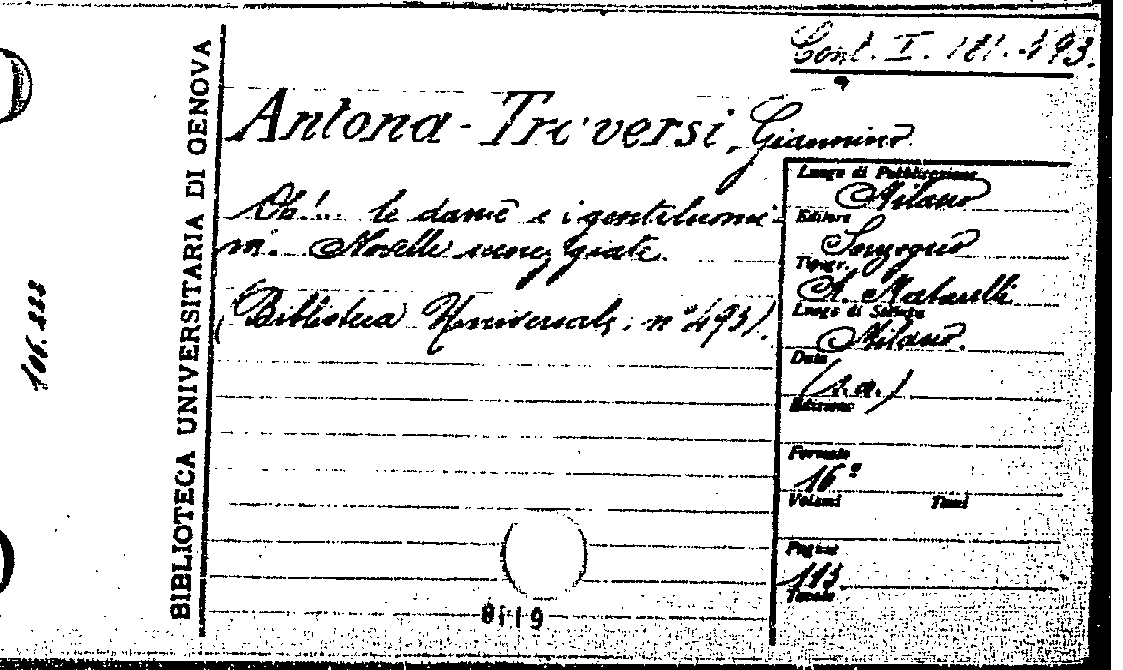 Cont. I. 181. 493.
Antona-Traversi, Giannino
Oh!.. le dame e i gentiluomi-
ni. Novelle sceneggiate.
(Biblioteca Universale, n° 493).
BIBLIOTECA UNIVERSITARIA DI GENOVA
106.222
Luogo di Pubblicazione
Milano
Editore
Sonzogno
Tipogr.
A. Matarelli
Luogo di Stampa
Milano.
Data
(s.a.)
Edizione
Formato
16°
Volumi Tomi
Pagine
113
Tavole